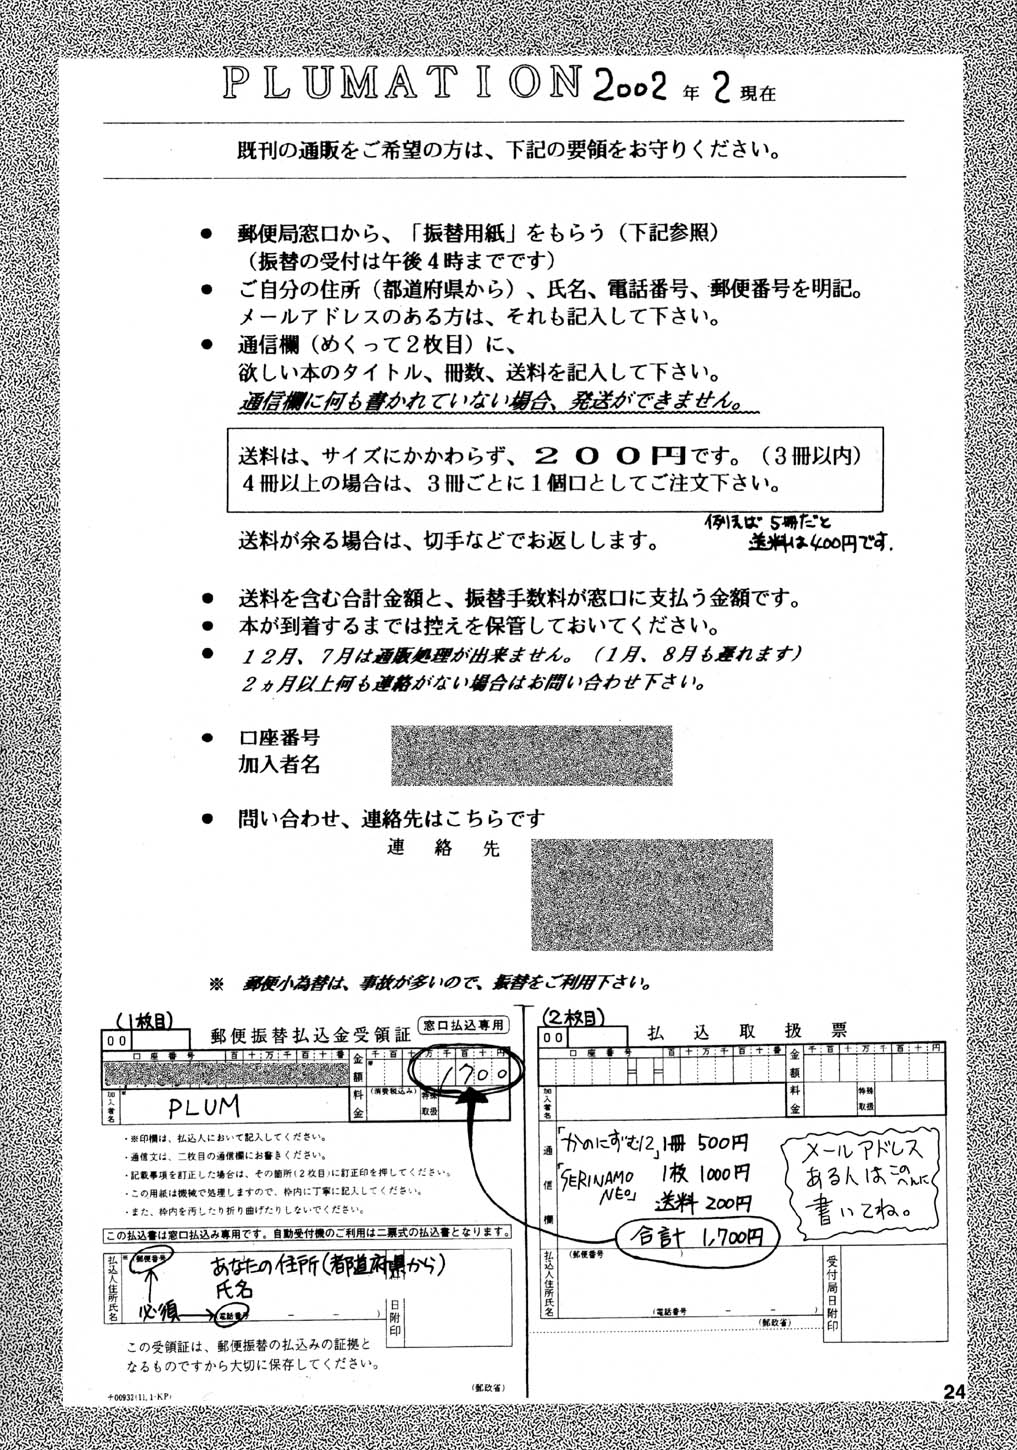 PLUMATION 2002年 2現在
既刊の通販をご希望の方は、下記の要領をお守りください。
● 郵便局窓口から、「振替用紙」をもらう（下記参照）
（振替の受付は午後４時までです）
● ご自分の住所（都道府県から）、氏名、電話番号、郵便番号を明記。
メールアドレスのある方は、それも記入して下さい。
● 通信欄（めくって２枚目）に、
欲しい本のタイトル、冊数、送料を記入して下さい。
通信欄に何も書かれていない場合、発送ができません。
送料は、サイズにかかわらず、２００円です。（３冊以内）
４冊以上の場合は、３冊ごとに１個口としてご注文下さい。
例えば 5冊だと
送料が余る場合は、切手などでお返しします。
送料は400円です.
● 送料を含む合計金額と、振替手数料が窓口に支払う金額です。
● 本が到着するまでは控えを保管しておいてください。
● １２月、７月は通販処理が出来ません。（１月、８月も遅れます）
２ヵ月以上何も連絡がない場合はお問い合わせ下さい。
● 口座番号
加入者名
● 問い合わせ、連絡先はこちらです
連絡先
※ 郵便小為替は、事故が多いので、振替をご利用下さい。
(1枚目)
00
郵便振替払込金受領証
窓口払込専用
口座番号 百十万千百十番
金額
千百十万千百十円
1700
加入者名
PLUM
料金
(消費税込み)
特殊取扱
・※印欄は、払込人において記入してください。
・通信文は、二枚目の通信欄にお書きください。
・記載事項を訂正した場合は、その箇所(２枚目)に訂正印を押してください。
・この用紙は機械で処理しますので、枠内に丁寧に記入してください。
・また、枠内を汚したり折り曲げたりしないでください。
この払込書は窓口払込み専用です。自動受付機のご利用は二票式の払込書となります。
払込人住所氏名
※
(郵便番号)
あなたの住所(都道府県から)
氏名
必須
(電話番号 － － )
日附印
この受領証は、郵便振替の払込みの証拠と
なるものですから大切に保存してください。
(郵政省)
+00932(1).1-KP)
(2枚目)
00
払込取扱票
口座番号 百十万千百十番
金額
千百十万千百十円
加入者名
料金
特殊取扱
通信欄
「かのにずむ12」1冊 500円
「SERINAMO NEO」 1枚 1000円
送料 200円
合計 1,700円
メールアドレス
ある人はこのへんに
書いてね。
払込人住所氏名
(郵便番号 )
(電話番号 － － )
(郵政省)
受付局日附印
24